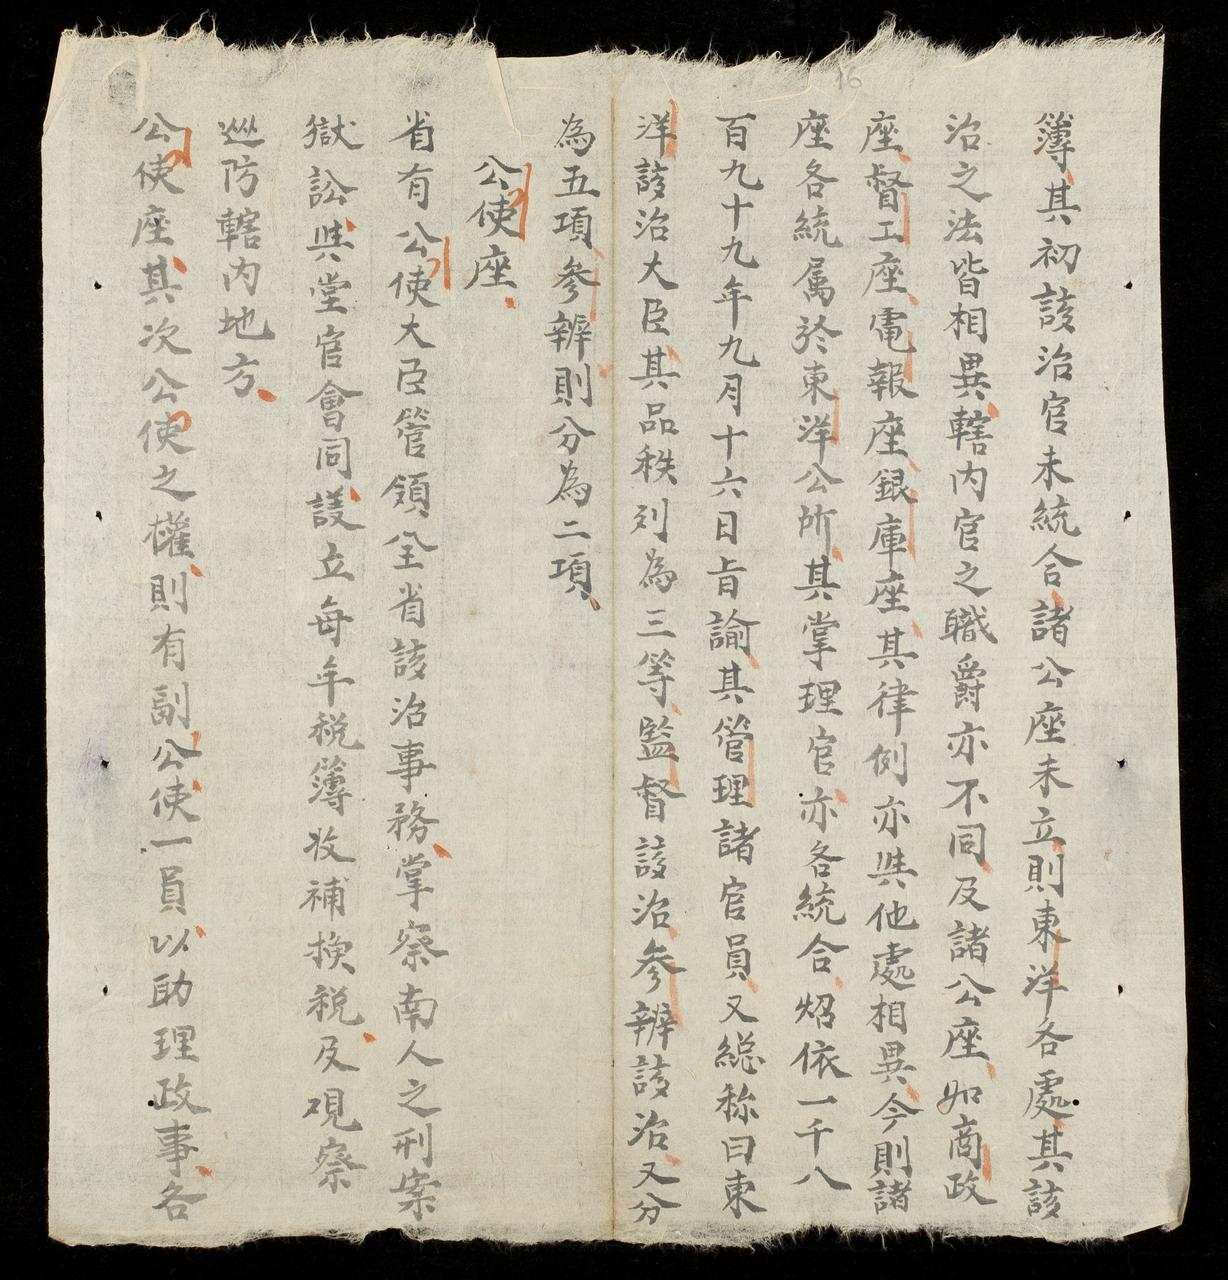 16
簿其初該治官未統合諸公座未立則東洋各處其該
治之法皆相異轄内官之職爵亦不同及諸公座如商政
座督工座電報座銀庫座其律例亦與他處相異今則諸
座各統属於東洋公所其掌理官亦各統合炤依一千八
百九十九年九月十六日旨諭其管理諸官員又総称曰東
洋該治大臣其品秩列為三等監督該治參辨該治又分
為五項參辨則分為二項
公使座
省有公使大臣管領全省該治事務掌察南人之刑案
獄訟與堂官會同議立每年税簿收補換税及覌察
巡防轄内地方
公使座其次公使之權則有副公使一員以助理政事各